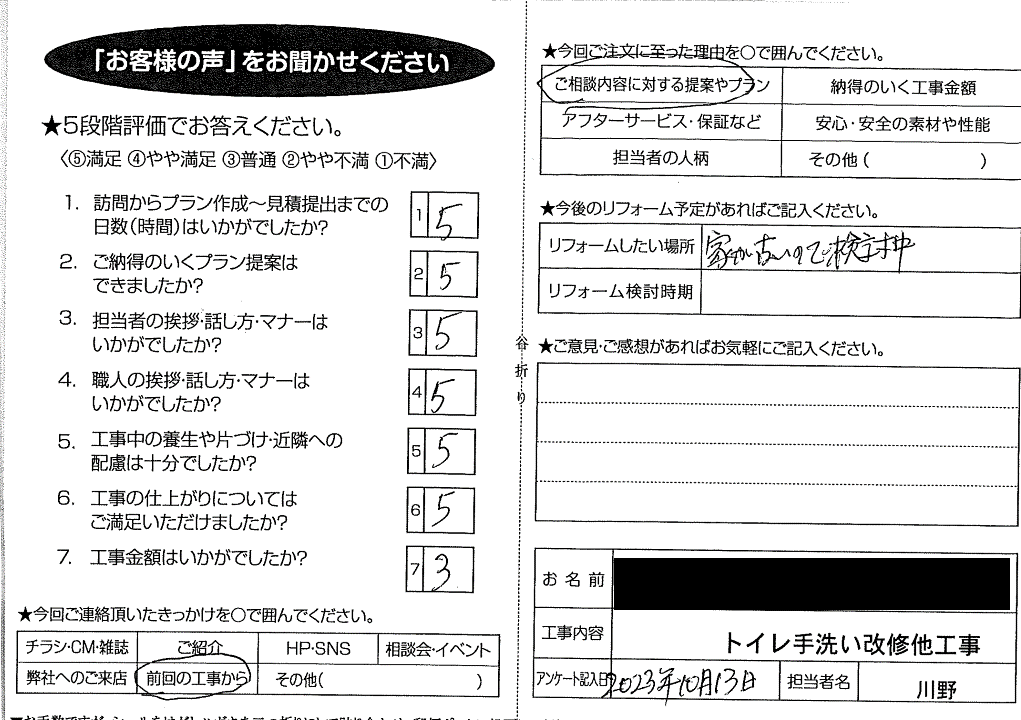 「お客様の声」をお聞かせください
★5段階評価でお答えください。
〈⑤満足 ④やや満足 ③普通 ②やや不満 ①不満〉
1. 訪問からプラン作成～見積提出までの
日数(時間)はいかがでしたか?
1 5
2. ご納得のいくプラン提案は
できましたか?
2 5
3. 担当者の挨拶・話し方・マナーは
いかがでしたか?
3 5
4. 職人の挨拶・話し方・マナーは
いかがでしたか?
4 5
5. 工事中の養生や片づけ・近隣への
配慮は十分でしたか?
5 5
6. 工事の仕上がりについては
ご満足いただけましたか?
6 5
7. 工事金額はいかがでしたか?
7 3
★今回ご連絡頂いたきっかけを○で囲んでください。
チラシ・CM・雑誌 ご紹介 HP・SNS 相談会・イベント
弊社へのご来店 前回の工事から その他( )
谷折り
★今回ご注文に至った理由を○で囲んでください。
ご相談内容に対する提案やプラン 納得のいく工事金額
アフターサービス・保証など 安心・安全の素材や性能
担当者の人柄 その他( )
★今後のリフォーム予定があればご記入ください。
リフォームしたい場所 家が古いので検討中
リフォーム検討時期
★ご意見・ご感想があればお気軽にご記入ください。
お名前
工事内容 トイレ手洗い改修他工事
アンケート記入日 2023年10月13日 担当者名 川野